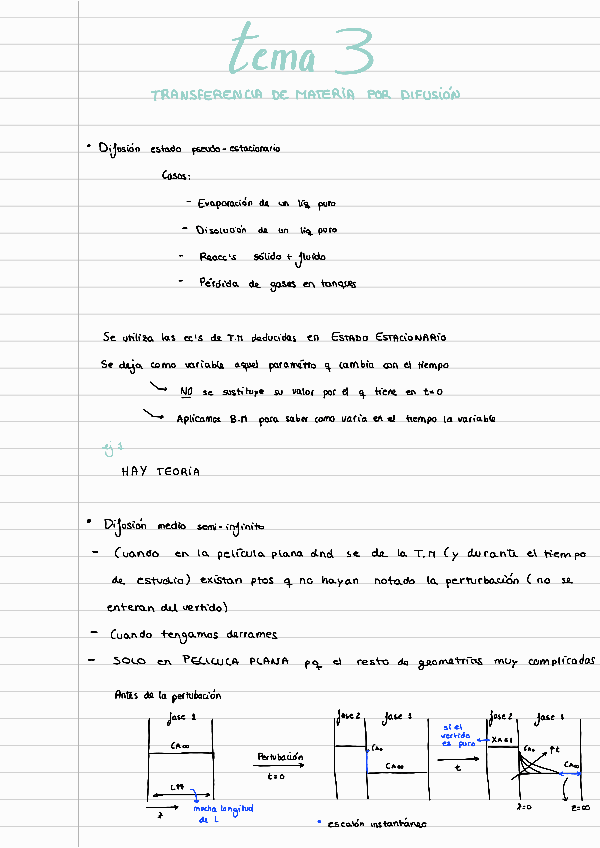 tema 3
TRANSFERENCIA DE MATERIA POR DIFUSIÓN
• Difusión estado pseudo-estacionario
Casos:
- Evaporación de un líq puro
- Disolución de un líq puro
- Reacc's sólido + fluido
- Pérdida de gases en tanques
Se utiliza las ec's de T.M deducidas en ESTADO ESTACIONARIO
Se deja como variable aquel parámetro q cambia con el tiempo
NO se sustituye su valor por el q tiene en t=0
Aplicamos B.M para saber como varía en el tiempo la variable
ej 1
HAY TEORÍA
• Difusión medio semi-infinito
- Cuando en la película plana dnd se de la T.M (y durante el tiempo
de estudio) existan ptos q no hayan notado la perturbación (no se
enteran del vertido)
- Cuando tengamos derrames
- SOLO en PELICULA PLANA pq el resto de geometrías muy complicadas
Antes de la pertubación
fase 1
CA∞
L↑↑
z
mucha longitud
de L
Perturbación
t=0
fase 2 fase 1
CA₀
CA∞
• escalón instantáneo
si el
vertido
es puro
t
fase 2 fase 1
XA=1
CA₀
↑t
CA∞
z=0 z=∞